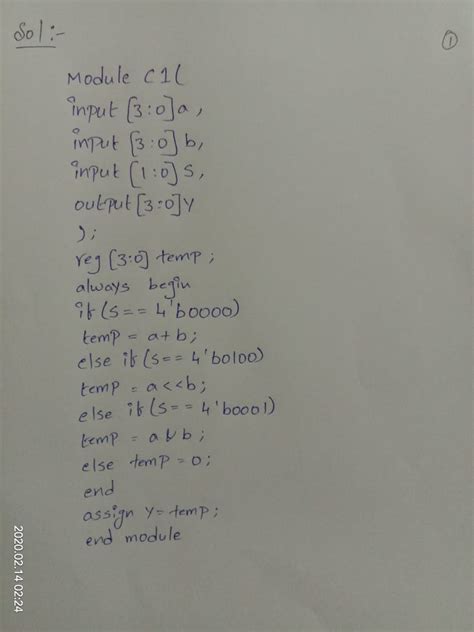 Sol:-
1
Module C1(
input [3:0]a,
input [3:0] b,
input [1:0] S,
output [3:0]Y
);
reg [3:0] temp;
always begin
if(S== 4'b0000)
temp = a+b;
else if(S== 4'b0100)
temp = a<<b;
else if(S== 4'b0001)
temp = a & b;
else temp = 0;
end
assign Y= temp;
end module
2020.02.14 02:24